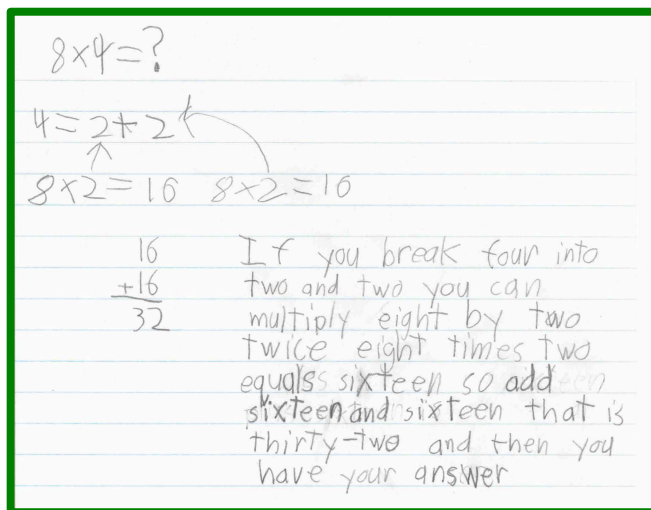 8×4=?
4=2+2
8×2=16 8×2=16
16
+16
32
If you break four into
two and two you can
multiply eight by two
twice eight times two
equals sixteen so add
sixteen and sixteen that is
thirty-two and then you
have your answer